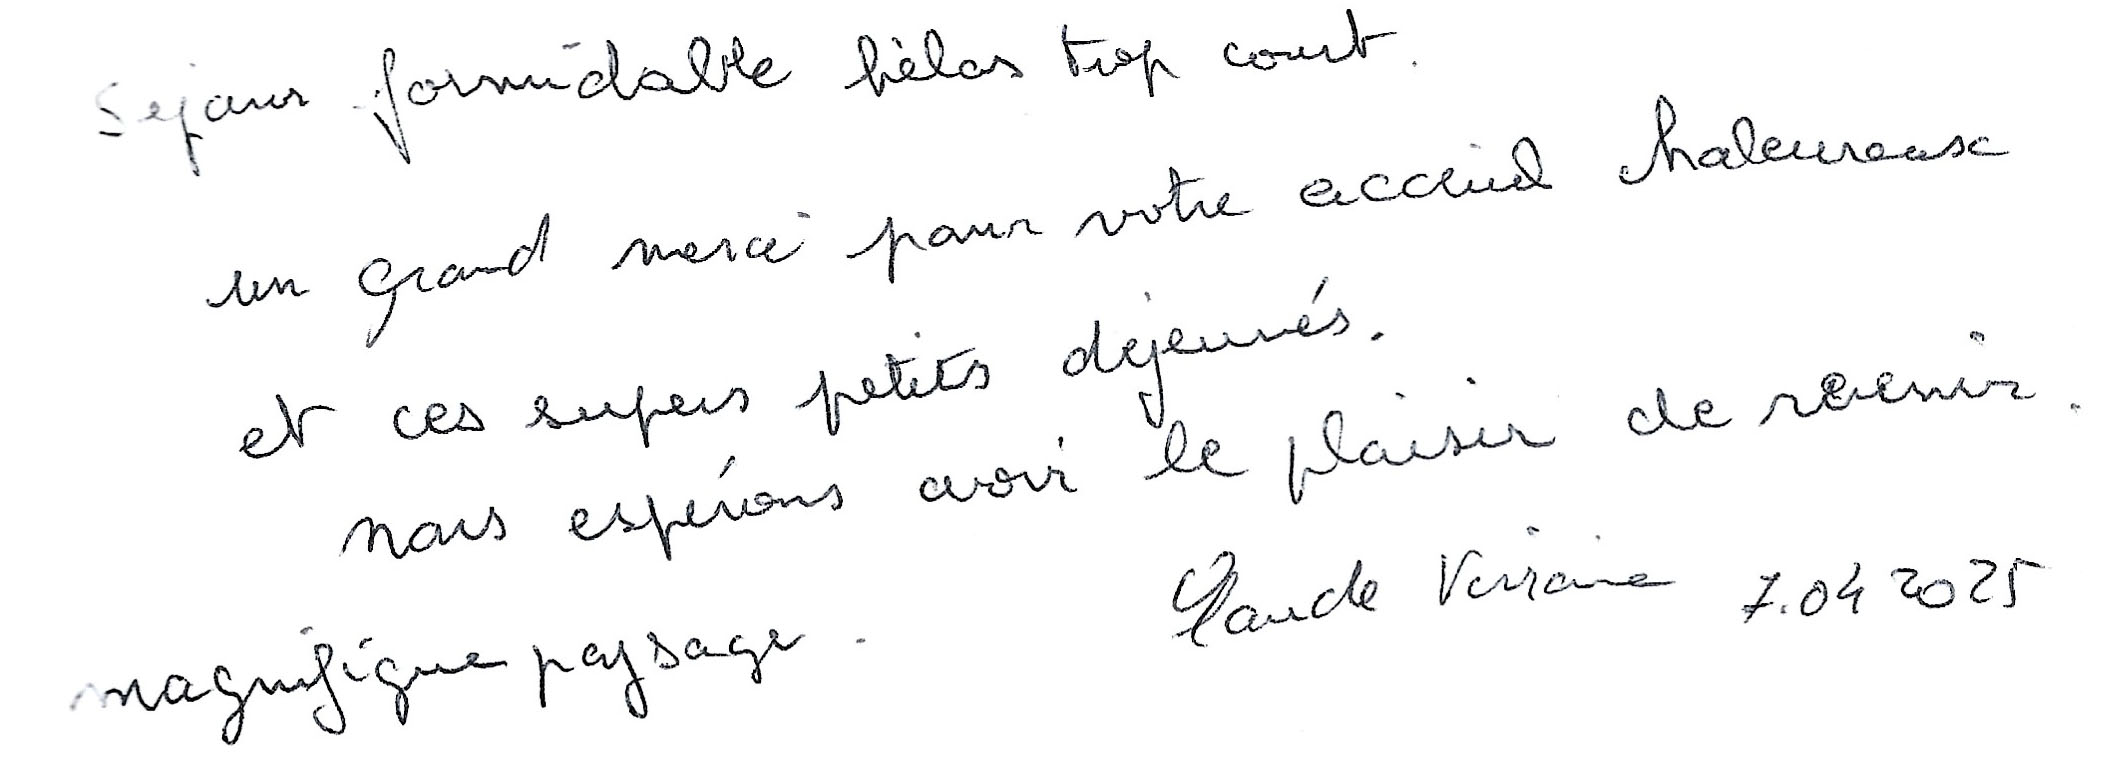 Sejour formidable hèlas trop court.
un grand merci pour votre accueil chaleureux
et ces supers petits dejeunés.
nous espérons avoir le plaisir de revenir.
magnifique paysage. Claude 7.04 2025